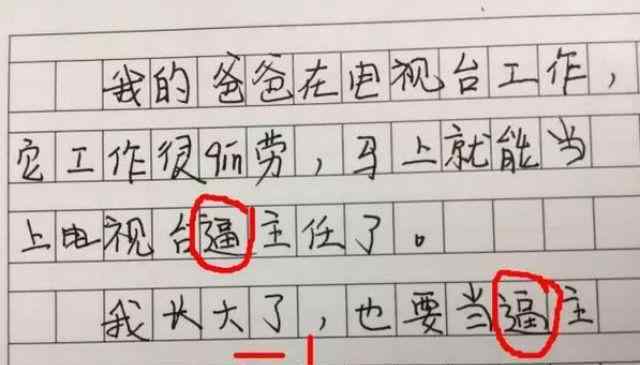 我的爸爸在电视台工作，
它工作很qin劳，马上就能当
上电视台逼主任了。
我长大了，也要当逼主